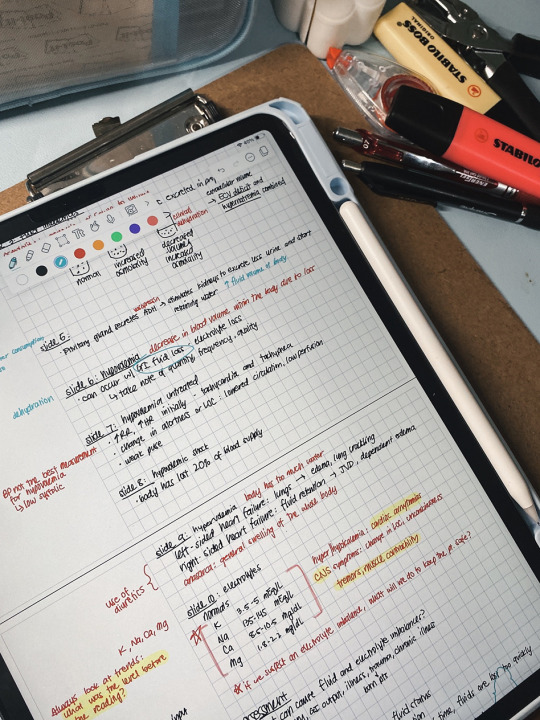 STABILO BOSS
ORIGINAL
STABILO
→ excreted in
extracellular volume
→ ECV deficit and
hypernatremia combined
clinical
dehydration
normal
increased
osmolality
decreased
volume,
increased
osmolality
slide 5:
vasopressin
• Pituitary gland secretes ADH → stimulates kidneys to excrete less urine, and start
retaining water ↑ fluid volume of body
consumption
slide 6: hypovolemia decrease in blood volume within the body due to loss
• can occur w/ GI fluid loss, electrolyte loss
↳ take note of quantity, frequency, quality
dehydration
slide 7: hypovolemia untreated
• ↑RR, ↑HR initially - tachycardia and tachypnea
• change in alertness or LOC: lowered circulation, low perfusion
• weak pulse
BP not the best measurement
for hypovolemia
↳ low systolic
slide 8: hypovolemic shock
• body has lost 20% of blood supply
slide 9: hypervolemia body has too much water
left-sided heart failure: lungs → edema, lung crackling
right-sided heart failure: fluid retention → JVD, dependent edema
anasarca: general swelling of the whole body
use of
diuretics
slide 10: electrolytes
normals
K 3.5-5 mEq/L
Na 135-145 mEq/L
Ca 8.5-10.5 mg/dL
Mg 1.8-2.2 mg/dL
hyper/hypokalemia: cardiac arrhythmias
CNS symptoms: change in LOC, unconsciousness
tremors, muscle contractility
K, Na, Ca, Mg
if we suspect an electrolyte imbalance, what will we do to keep the pt safe?
Always look at trends:
what was the level before
the reading?
can cause fluid and electrolyte imbalance?
output, illness, trauma, chronic illness
burn pts
fluid status
time, fluids are too quickly